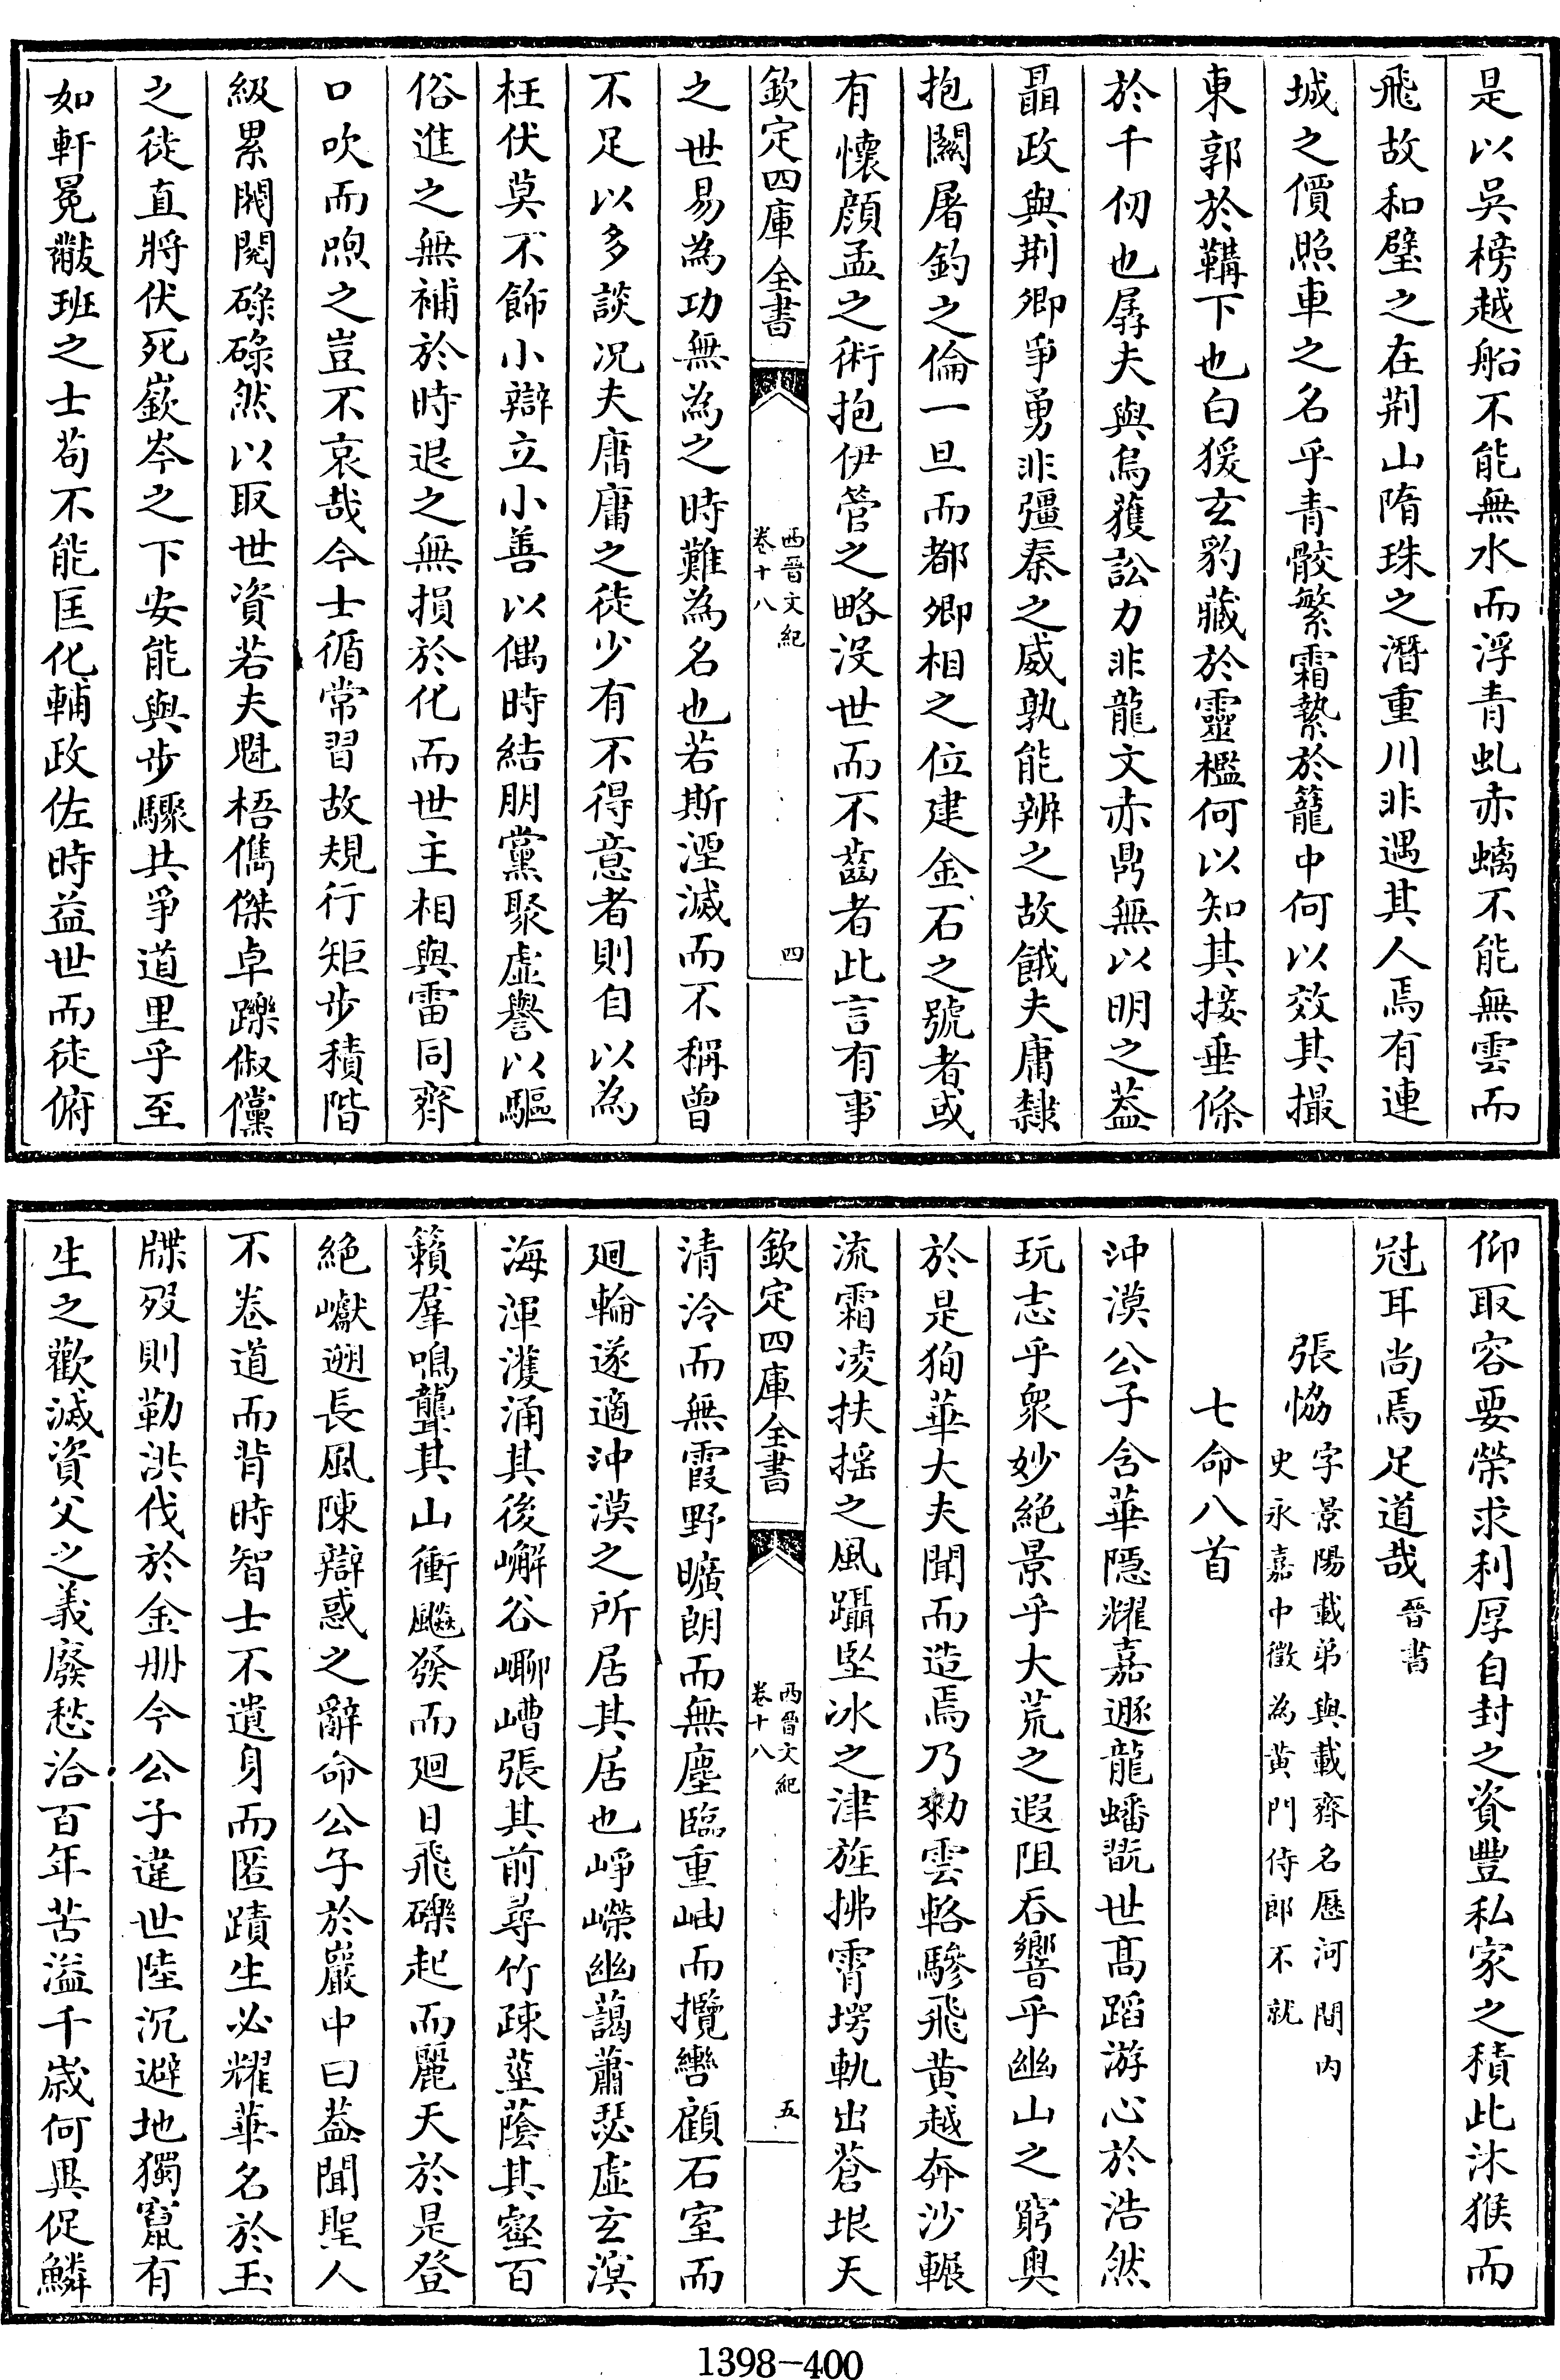 是以吳榜越船不能無水而浮青虬赤螭不能無雲而
飛故和璧之在荆山隋珠之潛重川非遇其人焉有連
城之價照車之名乎青骹繁霜縶於籠中何以效其撮
東郭於鞲下也白猨玄豹藏於靈檻何以知其接垂條
於千仞也孱夫與烏獲訟力非龍文赤鼎無以明之葢
聶政與荆卿爭勇非彊秦之威孰能辨之故餓夫庸隸
抱關屠釣之倫一旦而都卿相之位建金石之號者或
有懷顔孟之術抱伊管之略没世而不齒者此言有事
欽定四庫全書
西晉文紀
卷十八
四
之世易為功無為之時難為名也若斯湮滅而不稱曾
不足以多談况夫庸庸之徒少有不得意者則自以為
枉伏莫不飾小辯立小善以偶時結朋黨聚虛譽以驅
俗進之無補於時退之無損於化而世主相與雷同齊
口吹而喣之豈不哀哉今士循常習故規行矩步積階
級累閥閱碌碌然以取世資若夫魁梧儁傑卓躒俶儻
之徒直將伏死嶔岑之下安能與步驟共爭道里乎至
如軒冕黻班之士苟不能匡化輔政佐時益世而徒俯
仰取容要榮求利厚自封之資豐私家之積此沐猴而
冠耳尚焉足道哉晉書
張恊字景陽載弟與載齊名歴河間内
史永嘉中徵為黄門侍郎不就
七命八首
沖漠公子含華隠耀嘉遯龍蟠翫世髙蹈游心於浩然
玩志乎衆妙絶景乎大荒之遐阻吞響乎幽山之窮奥
於是狥華大夫聞而造焉乃勑雲輅驂飛黄越奔沙輾
流霜凌扶揺之風躡堅冰之津旌拂霄堮軌出蒼垠天
欽定四庫全書
西晉文紀
卷十八
五
清泠而無霞野曠朗而無塵臨重岫而攬轡顧石室而
廻輪遂適沖漠之所居其居也崢嶸幽藹蕭瑟虛玄溟
海渾濩涌其後嶰谷嶰嘈張其前尋竹竦莖蔭其壑百
籟羣鳴聾其山衝飈發而廻日飛礫起而麗天於是登
絶巘遡長風陳辯惑之辭命公子於巖中曰葢聞聖人
不卷道而背時智士不遺身而匿蹟生必耀華名於玉
牒歿則勒洪伐於金册今公子違世陸沉避地獨竄有
生之歡滅資父之義廢愁洽百年苦溢千嵗何異促鱗
1398-400